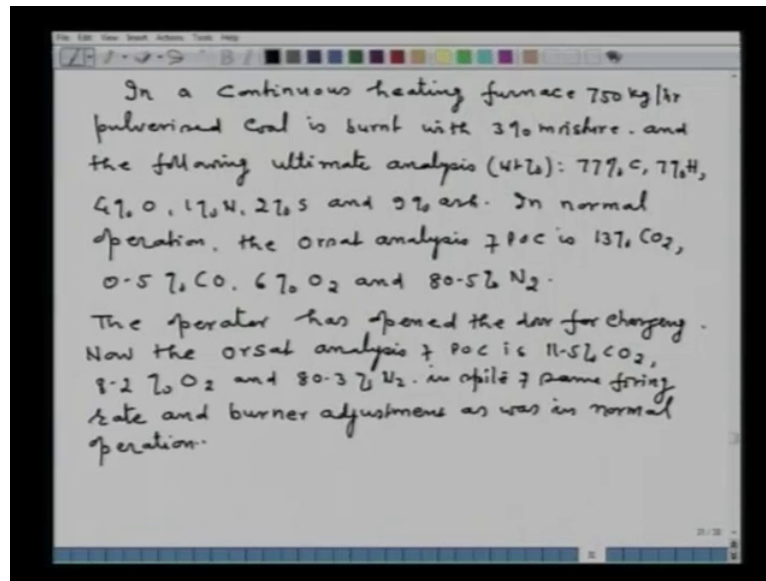 File Edit View Insert Actions Tools Help
In a continuous heating furnace 750 kg/hr
pulverised coal is burnt with 3% moisture. and
the following ultimate analysis (wt%): 77% C, 7% H,
4% O, 1% N, 2% S and 9% ash. In normal
operation, the orsat analysis of POC is 13% CO2,
0.5% CO, 6% O2 and 80.5% N2.
The operator has opened the door for charging.
Now the orsat analysis of POC is 11.5% CO2,
8.2% O2 and 80.3% N2. in spite of same firing
rate and burner adjustment as was in normal
operation.